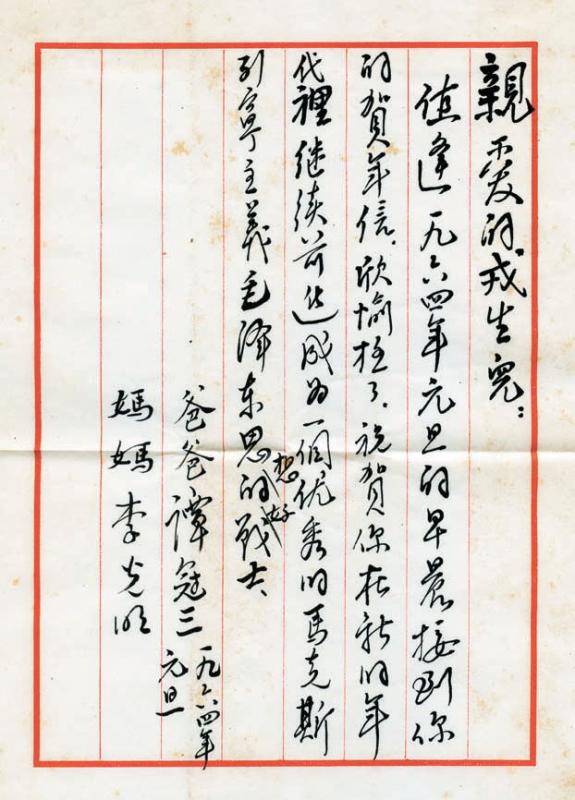 親爱的戎生兒：
值逢一九六四年元旦的早晨接到你
的賀年信，欣愉极了，祝賀你在新的年
代裡继续前进成为一個优秀的馬克斯
列宁主義毛泽东思想的好战士、
爸爸譚冠三 一九六四年
元旦
媽媽李光明